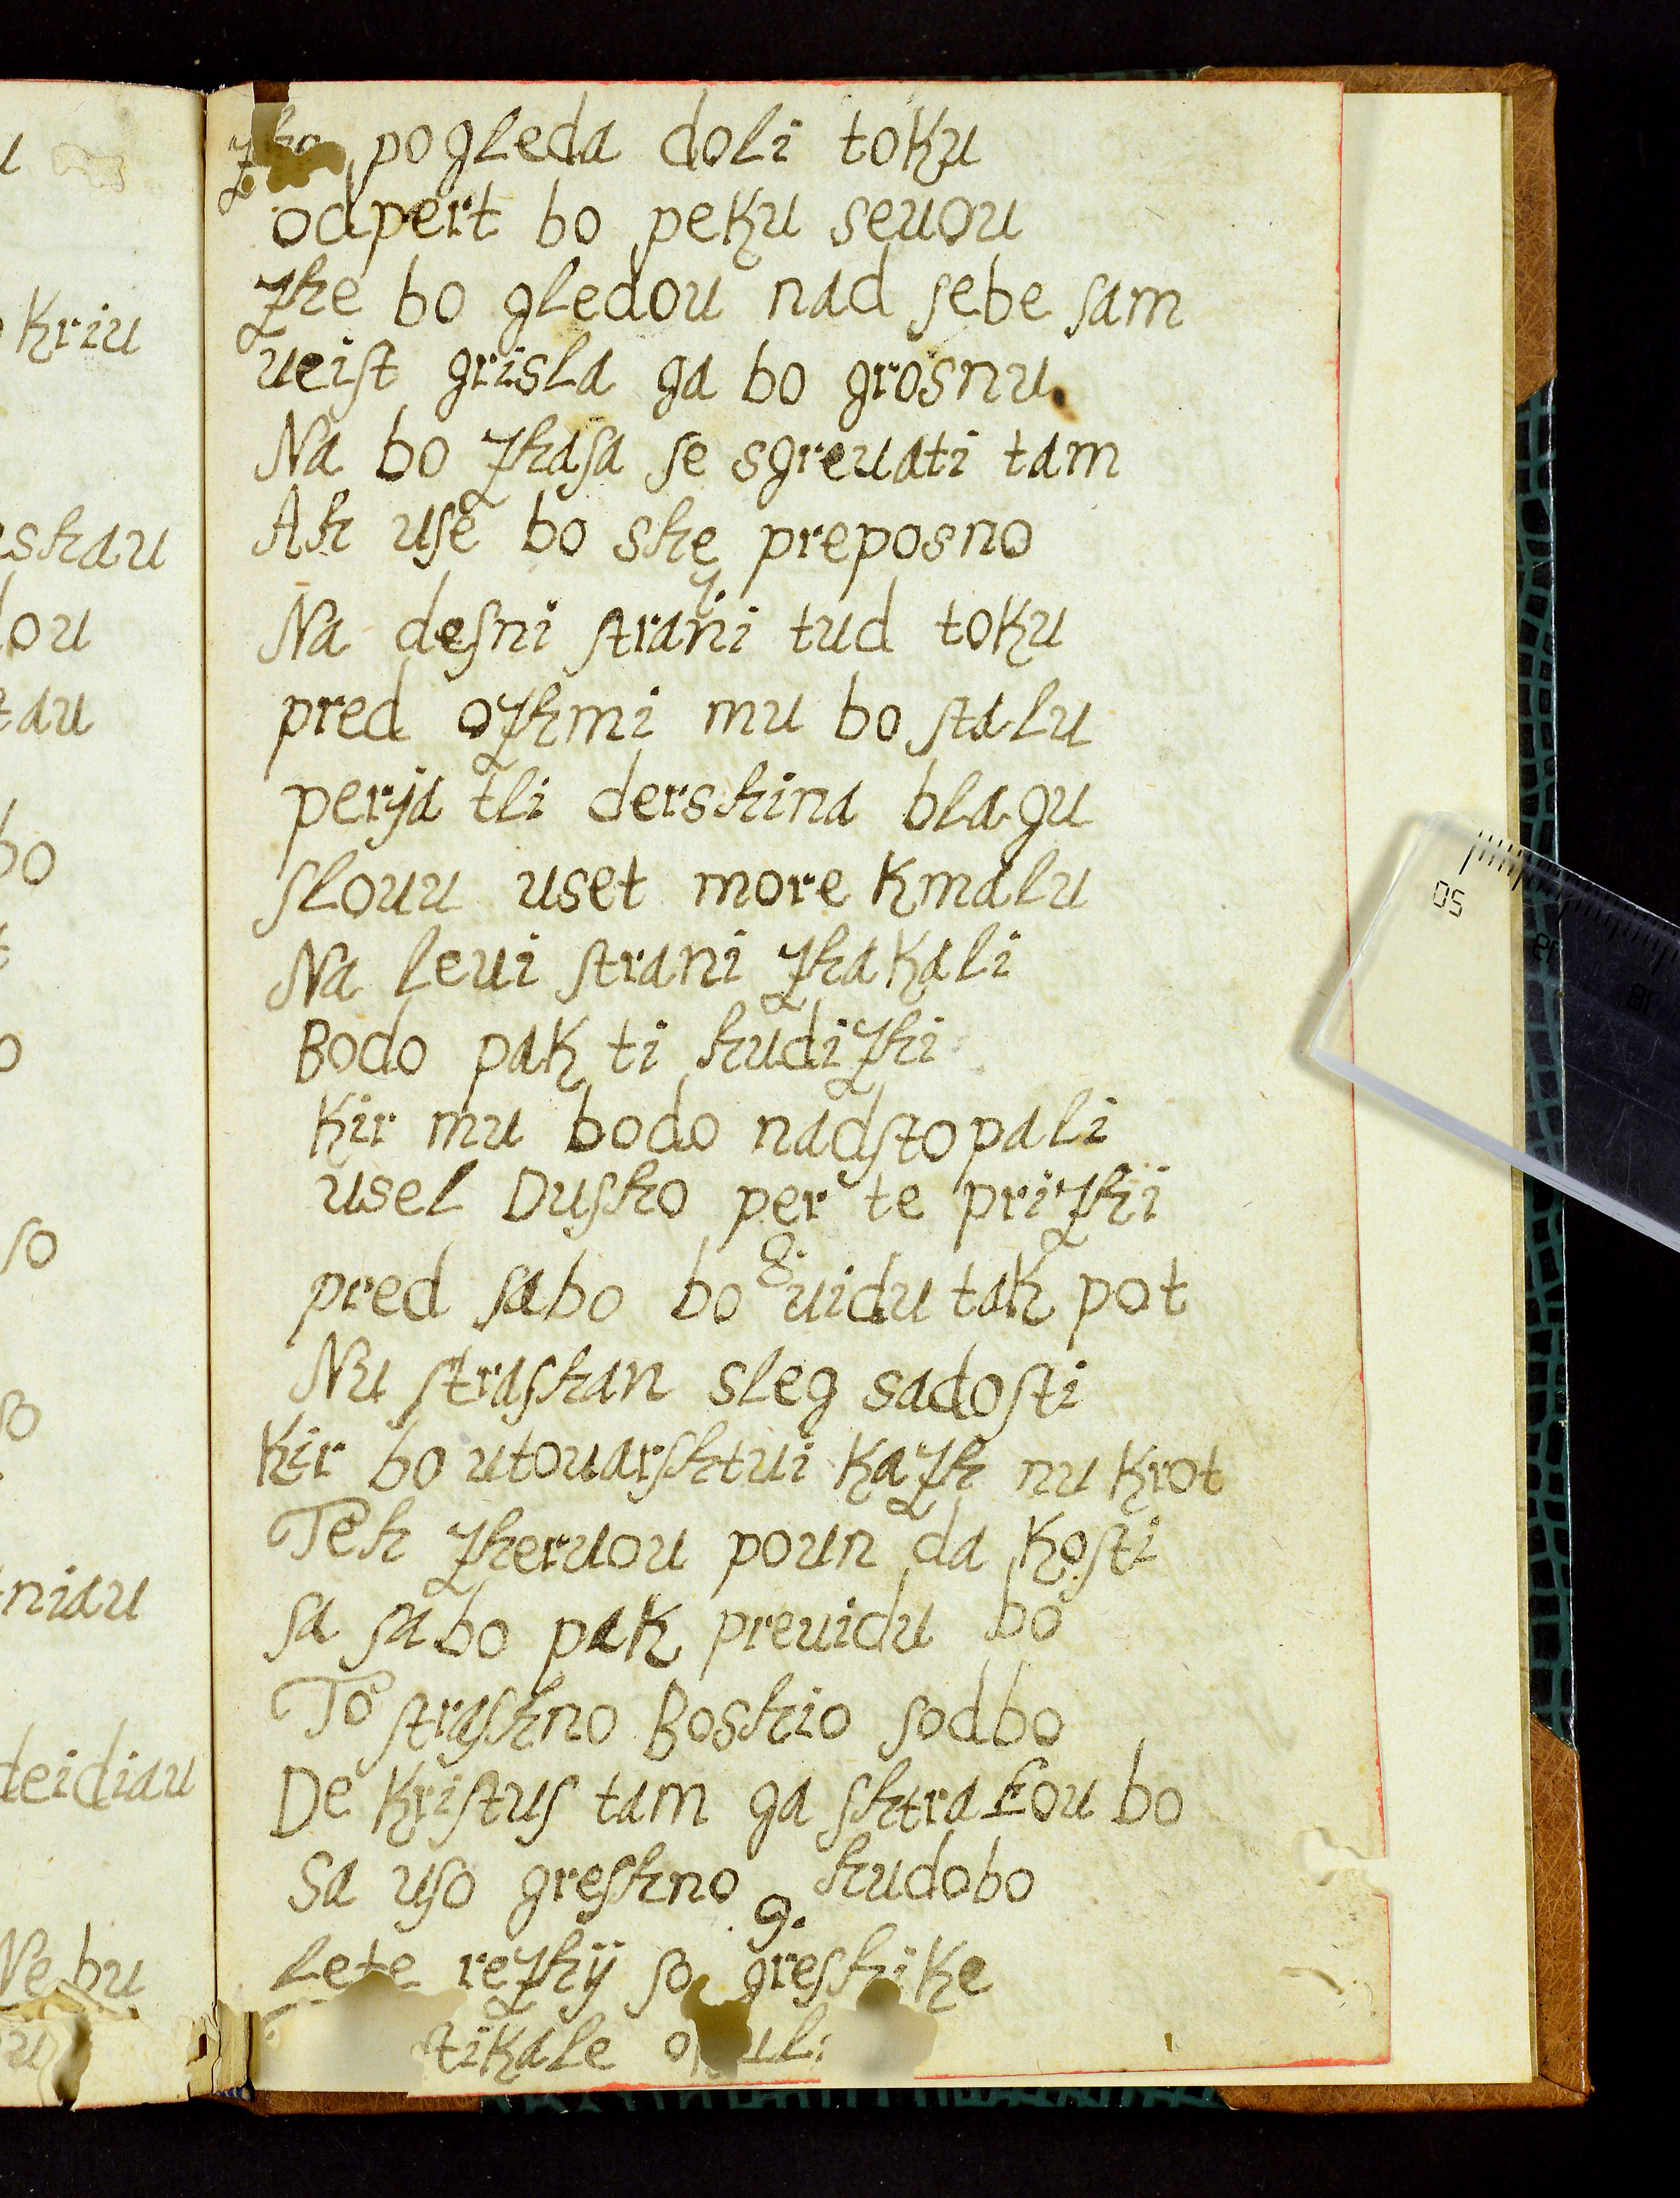 pogleda doli toku
odpert bo peku seuou
zhe bo gledou nad ſebe sam
ueiſt grisla ga bo grosnu
Na bo zhaſa ſe sgreuati tam
Ah uſe bo she preposno
7.
Na deſni ſtrani tud toku
pred ozhmi mu bo ſtalu
perja tli dershina blagu
ſlouu uset more kmalu
Na leui ſtrani zhakali
Bodo pak ti hudizhi
Kir mu bodo nadſtopali
usel Duſho per te prizhi
8.
pred sabo bo uidu tak pot
Nu ſtraſhan sleg sadoſti
Kir bo utouarſhtui kazh nu krot
Teh zheruou poun da koſti
sa ſabo pak preuidu bo
To ſtraſhno Boshio ſodbo
De kriſtus tam ga ſhtrafou bo
Sa uſo greſhno hudobo
9.
Lete rezhij so greshike
tikale